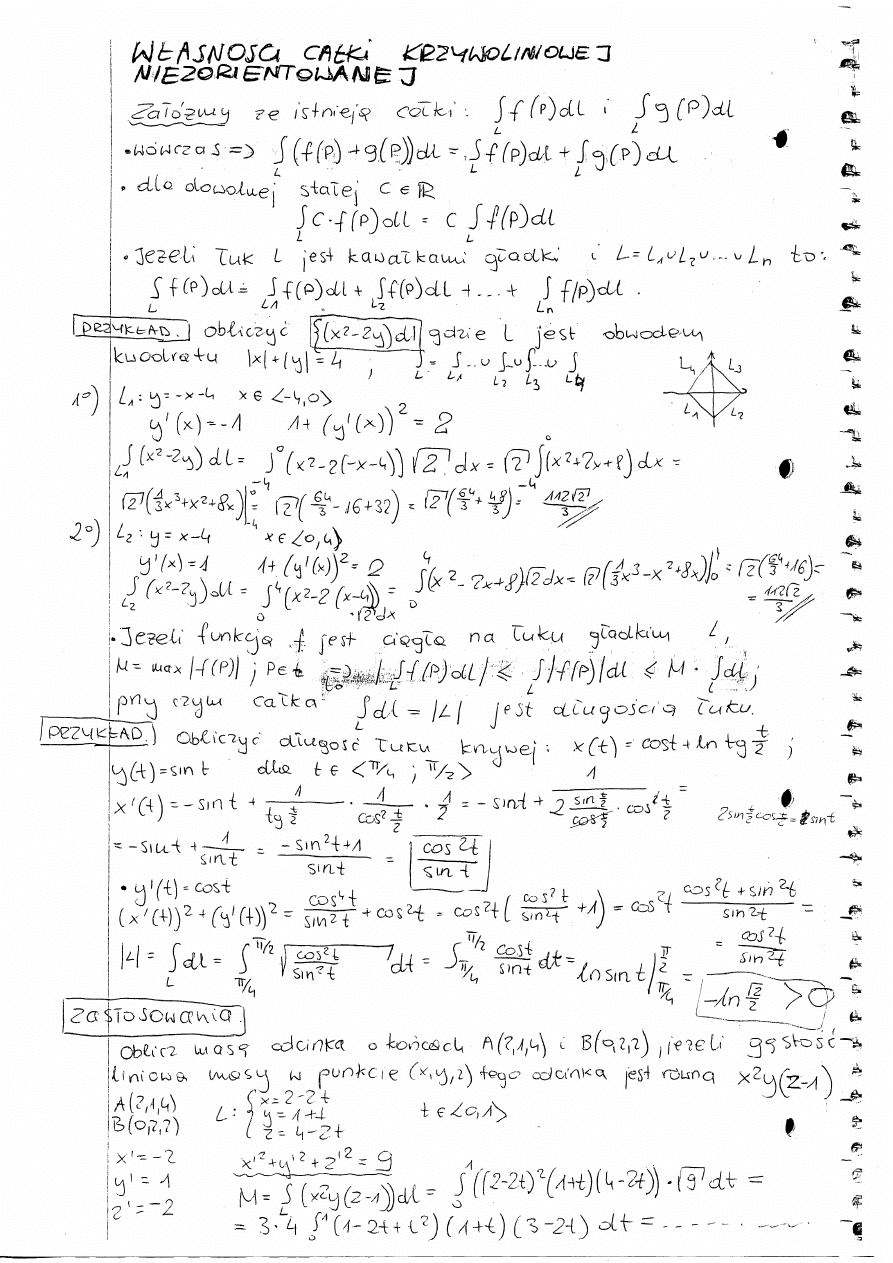 WŁASNOŚCI CAŁKI KRZYWOLINIOWEJ
NIEZORIENTOWANEJ
Załóżmy ze istnieją całki: ∫_L f(P)dl i ∫_L g(P)dl
• wówczas => ∫_L (f(P)+g(P))dl = ∫_L f(P)dl + ∫_L g(P)dl
• dla dowolnej stałej C ∈ ℝ
∫_L C·f(P)dl = C ∫_L f(P)dl
• Jeżeli łuk L jest kawałkami gładki i L = L1∪L2∪...∪Ln to:
∫_L f(P)dl = ∫_L1 f(P)dl + ∫_L2 f(P)dl + ... + ∫_Ln f(P)dl.
PRZYKŁAD. obliczyć ∫(x²-2y)dl gdzie L jest obwodem
kwadratu |x|+|y|=4 ; ∫_L = ∫_L1 ...∪ ∫_L2 ∪ ∫_L3 ...∪ ∫_L4
L4 L3
L1 L2
1°) L1: y=-x-4 x∈<-4,0>
y'(x)=-1 1+(y'(x))² = 2
∫_L1 (x²-2y)dl = ∫_-4^0 (x²-2(-x-4))√2 dx = √2 ∫_-4^0 (x²+2x+8)dx =
√2(1/3x³+x²+8x)|_-4^0 = √2(64/3-16+32) = √2(64/3+48/3) = 112√2/3
2°) L2: y=x-4 x∈<0,4>
y'(x)=1 1+(y'(x))²=2
∫_L2 (x²-2y)dl = ∫_0^4 (x²-2(x-4))·√2dx = ∫_0^4 (x²-2x+8)√2dx = √2(1/3x³-x²+8x)|_0 = √2(64/3+16) =
= 112√2/3
• Jeżeli funkcja f jest ciągła na łuku gładkim L,
M = max |f(P)| ; P∈L => |∫_L f(P)dl| ≤ ∫_L |f(P)|dl ≤ M·∫_L dl;
przy czym całka ∫_L dl = |L| jest długością łuku.
PRZYKŁAD. Obliczyć długość łuku krzywej: x(t) = cost + ln tg t/2 ;
y(t)=sin t dla t∈<π/4 ; π/2>
x'(t) = -sin t + 1/(tg t/2) · 1/(cos² t/2) · 1/2 = -sint + 1/(2 (sin t/2)/(cos t/2) · cos² t/2) =
2sin t/2 cos t/2 = sin t
= -sint + 1/sint = (-sin²t+1)/sint = cos²t/sin t
• y'(t) = cost
(x'(t))² + (y'(t))² = cos⁴t/sin²t + cos²t = cos²t(cos²t/sin²t + 1) = cos²t (cos²t+sin²t)/sin²t =
= cos²t/sin²t
|L| = ∫_L dl = ∫_π/4^π/2 √(cos²t/sin²t) dt = ∫_π/4^π/2 cost/sint dt = ln sin t|_π/4^π/2 = -ln √2/2 > 0
Zastosowania.
Oblicz masę odcinka o końcach A(2,1,4) i B(0,2,2), jeżeli gęstość
liniowa masy w punkcie (x,y,z) tego odcinka jest równa x²y(z-1)
A(2,1,4)
B(0,2,2)
L: { x=2-2t
y=1+t
z=4-2t
t∈<0,1>
x'=-2
y'=1
z'=-2
x'²+y'²+z'²=9
M = ∫_L (x²y(z-1))dl = ∫_0^1 ((2-2t)²(1+t)(4-2t))·√9 dt =
= 3·4 ∫_0^1 (1-2t+t²)(1+t)(3-2t) dt = ----------